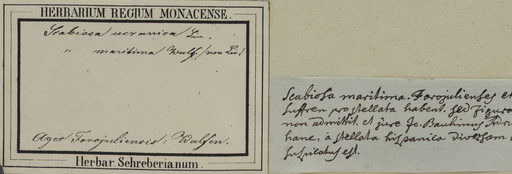 HERBARIUM REGIUM MONACENSE.
Scabiosa ucranica Lin.
" maritima Wulf. (non Lin.)
Ager Forojuliensis: Wulfen.
Herbar. Schreberianum.
Scabiosa maritima. Forojulienses et
pro stellata habent. sed figura
non admittit. et jure Jo. Bauhinus
hanc, a stellata hispanica diversam
suspicatus est.